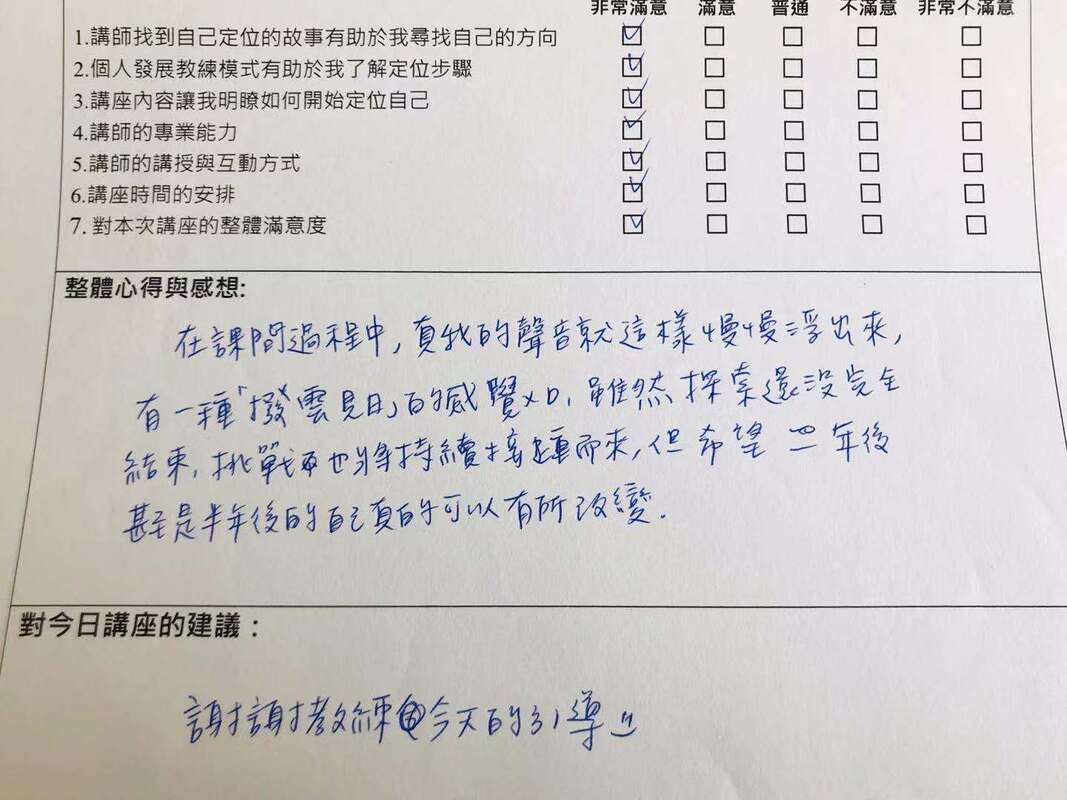 非常滿意 滿意 普通 不滿意 非常不滿意
1.講師找到自己定位的故事有助於我尋找自己的方向 ☑ ☐ ☐ ☐ ☐
2.個人發展教練模式有助於我了解定位步驟 ☑ ☐ ☐ ☐ ☐
3.講座內容讓我明瞭如何開始定位自己 ☑ ☐ ☐ ☐ ☐
4.講師的專業能力 ☑ ☐ ☐ ☐ ☐
5.講師的講授與互動方式 ☑ ☐ ☐ ☐ ☐
6.講座時間的安排 ☑ ☐ ☐ ☐ ☐
7. 對本次講座的整體滿意度 ☑ ☐ ☐ ☐ ☐
整體心得與感想:
在課間過程中,真我的聲音就這樣慢慢浮出來,
有一種「撥雲見日」的感覺XD,雖然探索還沒完全
結束,挑戰也將持續接踵而來,但希望二年後
甚至是半年後的自己真的可以有所改變.
對今日講座的建議：
謝謝教練今天的引導